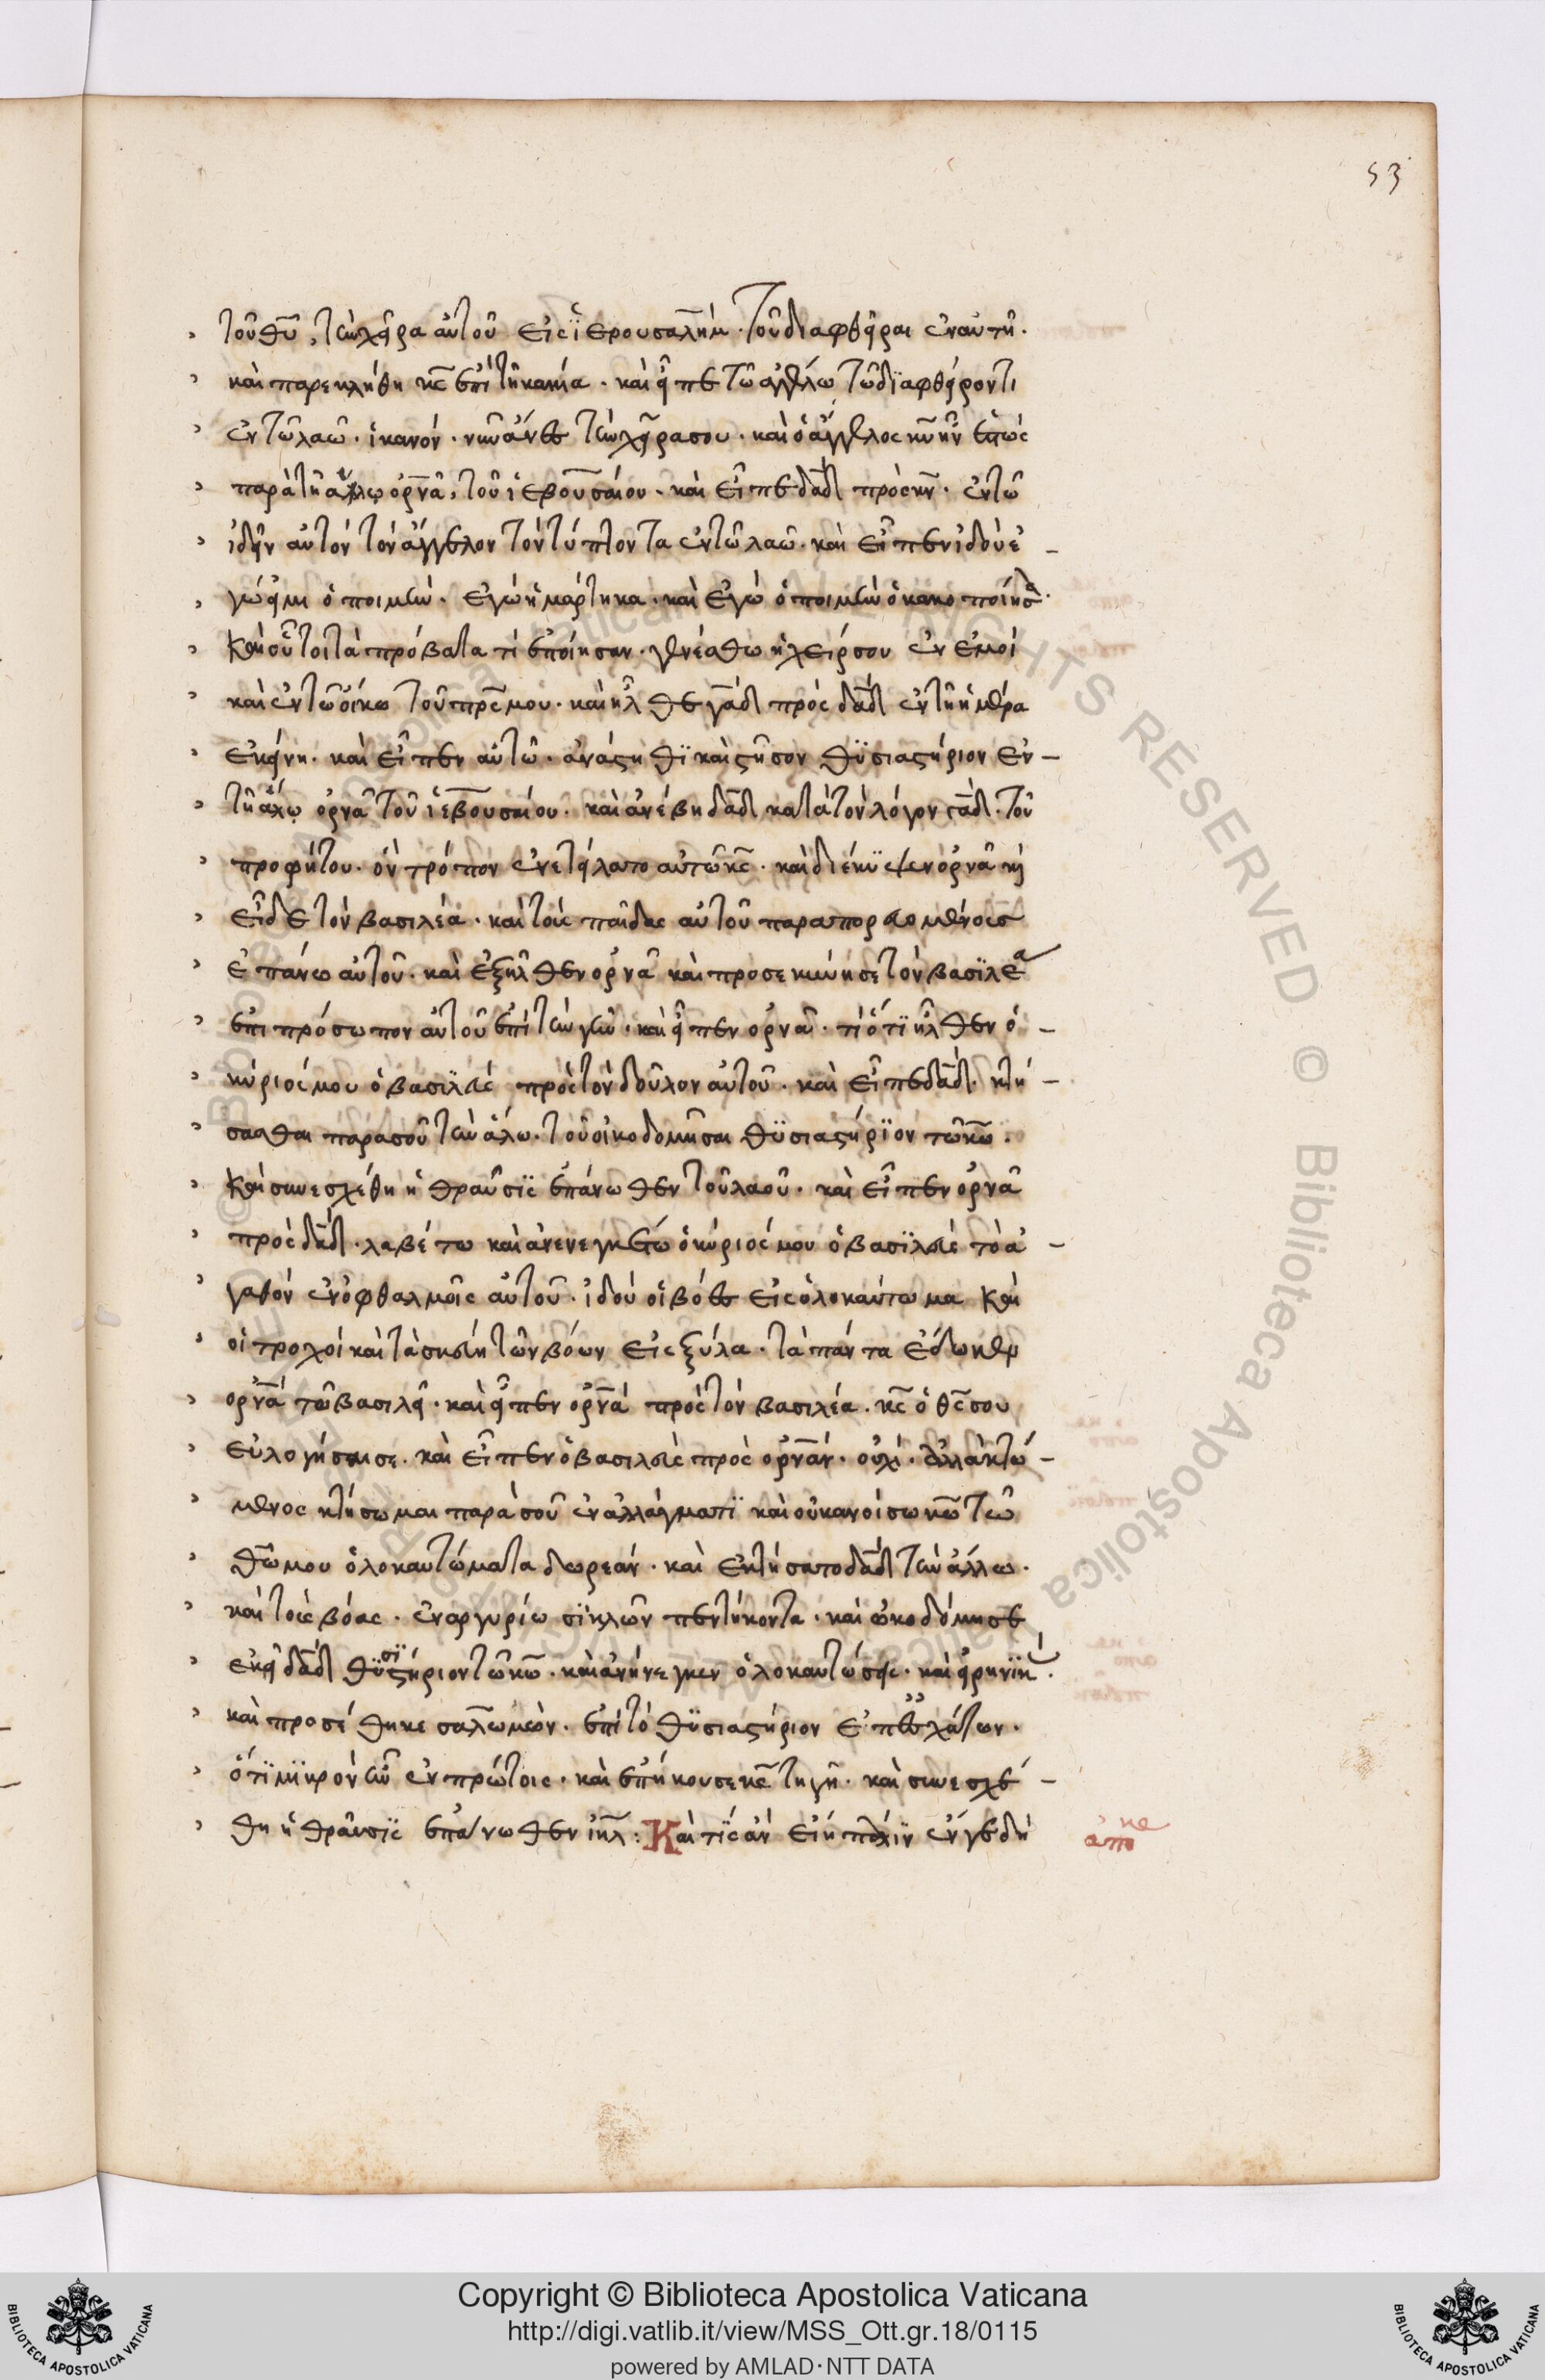 53
τοῦ θῦ, τὴν χεῖρα αὐτοῦ εἰς ϊερουσαλὴμ · τοῦ διαφθεῖραι ἐν αὐτῆ ·
καὶ παρεκλήθη κς ἐπὶ τῆ κακία · καὶ εἶπε τῶ ἀγγέλω τῶ διαφθείροντι
ἐν τῶ λαῶ · ἱκανόν · νῦν ἄνες τὴν χεῖρα σου · καὶ ὁ ἄγγελος κυ ἦν ἑστὼς
παρὰ τῆ ἅλω ὀρνᾶ, τοῦ ἰεβουσαίου · καὶ εἶπε δαδ πρὸς κν · ἐν τῶ
ἰδεῖν αὐτὸν τὸν ἄγγελον τὸν τύπτοντα ἐν τῶ λαῶ · καὶ εἶπεν ἰδοὺ ἐ -
γώ εἰμι ὁ ποιμὴν · ἐγὼ ἡμάρτηκα · καὶ ἐγὼ ὁ ποιμὴν ἐκακοποίησα ·
καὶ οὗτοι τὰ πρόβατα τί ἐποίησαν · γενέσθω ἡ χείρ σου ἐν ἐμοὶ
καὶ ἐν τῶ οἴκω τοῦ πρς μου · καὶ ἦλθε γὰδ πρὸς δαδ ἐν τῆ ἡμέρα
ἐκείνη · καὶ εἶπεν αὐτῶ · ἀνάστηθϊ καὶ στῆσον θϋσιαστήριον ἐν -
τῆ ἅλω ὀρνᾶ τοῦ ἰεβουσαίου · καὶ ἀνέβη δαδ κατὰ τὸν λόγον γάδ · τοῦ
προφήτου · ὃν τρόπον ἐνετείλατο αὐτῶ κς · καὶ διέκϋψεν ὀρνᾶ κὶ
εἶδε τὸν βασιλέα · καὶ τοὺς παῖδας αὐτοῦ παραπορευομένους
ἐπάνω αὐτοῦ · καὶ ἐξῆλθεν ὀρνᾶ καὶ προσεκύνησε τὸν βασϊλέα
ἐπι πρόσωπον αὐτοῦ ἐπὶ τὴν γῆν · καὶ εἶπεν ὀρνᾶ · τί ὅτϊ ἦλθεν ὁ -
κύριός μου ὁ βασϊλεὺς πρὸς τὸν δοῦλον αὐτοῦ · καὶ εἶπε δαδ · κτή -
σασθαι παρα σοῦ τὴν ἅλω · τοῦ οἰκοδομῆσαι θϋσιαστήρϊον τῶ κω ·
καὶ συνεσχέθη ἡ θραῦσϊς ἐπάνωθεν τοῦ λαοῦ · καὶ εἶπεν ὀρνᾶ
πρὸς δαδ · λαβέτω καὶ ἀνενεγκέτω ὁ κύριός μου ὁ βασϊλεὺς τὸ ἀ -
γαθὸν ἐν ὀφθαλμοῖς αὐτοῦ · ἰδοὺ οἱ βόες εἰς ὁλοκαύτωμα καὶ
οἱ τροχοὶ καὶ τὰ σκεύη τῶν βοῶν εἰς ξύλα · τὰ πάντα ἔδωκεν
ορνὰ τῶ βασιλεῖ · καὶ εἶπεν ὀρνὰ πρὸς τὸν βασιλέα · κς ὁ θς σου
εὐλογήσαι σε · καὶ εἶπεν ὁ βασιλεὺς πρὸς ὀρνὰν · οὐχὶ · ἀλλὰ κτώ -
μενος κτήσωμαι παρὰ σοῦ ἐν ἀλλάγματϊ καὶ οὐκ ἀνοίσω κω τῶ
θω μου ὁλοκαυτώματα δωρεὰν · καὶ ἐκτήσατο δαδ τὴν ἅλλω ·
καὶ τοὺς βόας · ἐν ἀργυρίω σϊκλῶν πεντήκοντα · καὶ ὠκοδόμησε
ἐκεῖ δαδ θϋσϊαστήριον τῶ κω · καὶ ἀνήνεγκεν ὁλοκαυτώσεις · καὶ εἰρηνϊκ ·
καὶ προσέθηκε σαλωμὼν · ἐπὶ τὸ θϋσιαστήριον ἐπ ἐσχάτων ·
ὅτϊ μϊκρὸν ἦν ἐν πρώτοις · καὶ ἐπήκουσε κς τῆ γῆ · καὶ συνεσχέ -
θη ἡ θραῦσϊς ἐπάνωθεν ιηλ : Καὶ τϊς ἂν εἴη πάλϊν ἐν γεδὴ